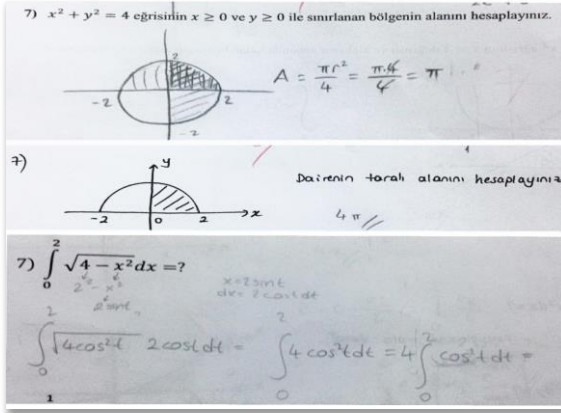 7) x² + y² = 4 eğrisinin x ≥ 0 ve y ≥ 0 ile sınırlanan bölgenin alanını hesaplayınız.
2
-2 2
-2
A = πr²/4 = π.4/4 = π
7)
y
-2 0 2 x
Dairenin taralı alanını hesaplayınız
4π
7) ∫₀² √(4 − x²) dx =?
2² - x²
2sint
x=2sint
dx= 2costdt
∫₀² √4cos²t 2cost dt = ∫₀² 4 cos²t dt = 4 ∫₀² cos²t dt =
1